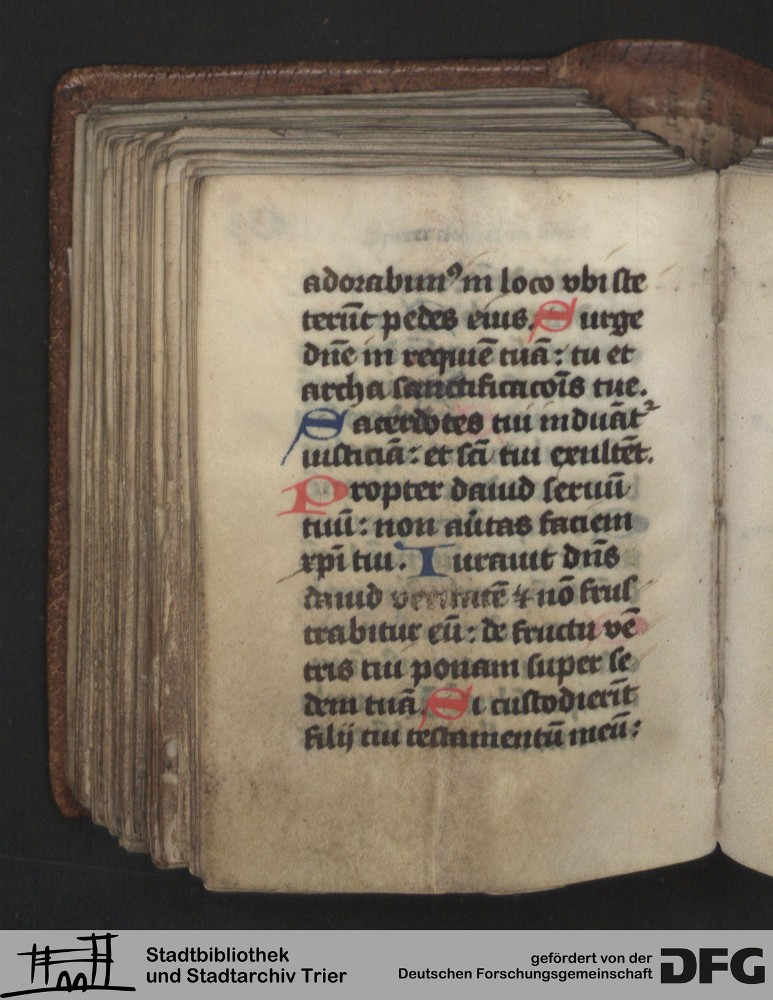 adorabim⁹ in loco vbi ste
terūt pedes eius. Surge
dn̄e in requiē tuā: tu et
archa sanctificacōis tue.
Sacerdotes tui induāt²
iusticiā: et sc̄i tui exultēt.
Propter dauid seruū
tuū: non au̅tas faciem
xp̄i tui. Iurauit dn̄s
dauid veritatē ⁊ nō frus
trabitur eū: de fructu vē
tris tui ponam super se
dem tuā. Si custodierīt
filij tui testamentū meū:
Stadtbibliothek
und Stadtarchiv Trier
gefördert von der
Deutschen Forschungsgemeinschaft
DFG